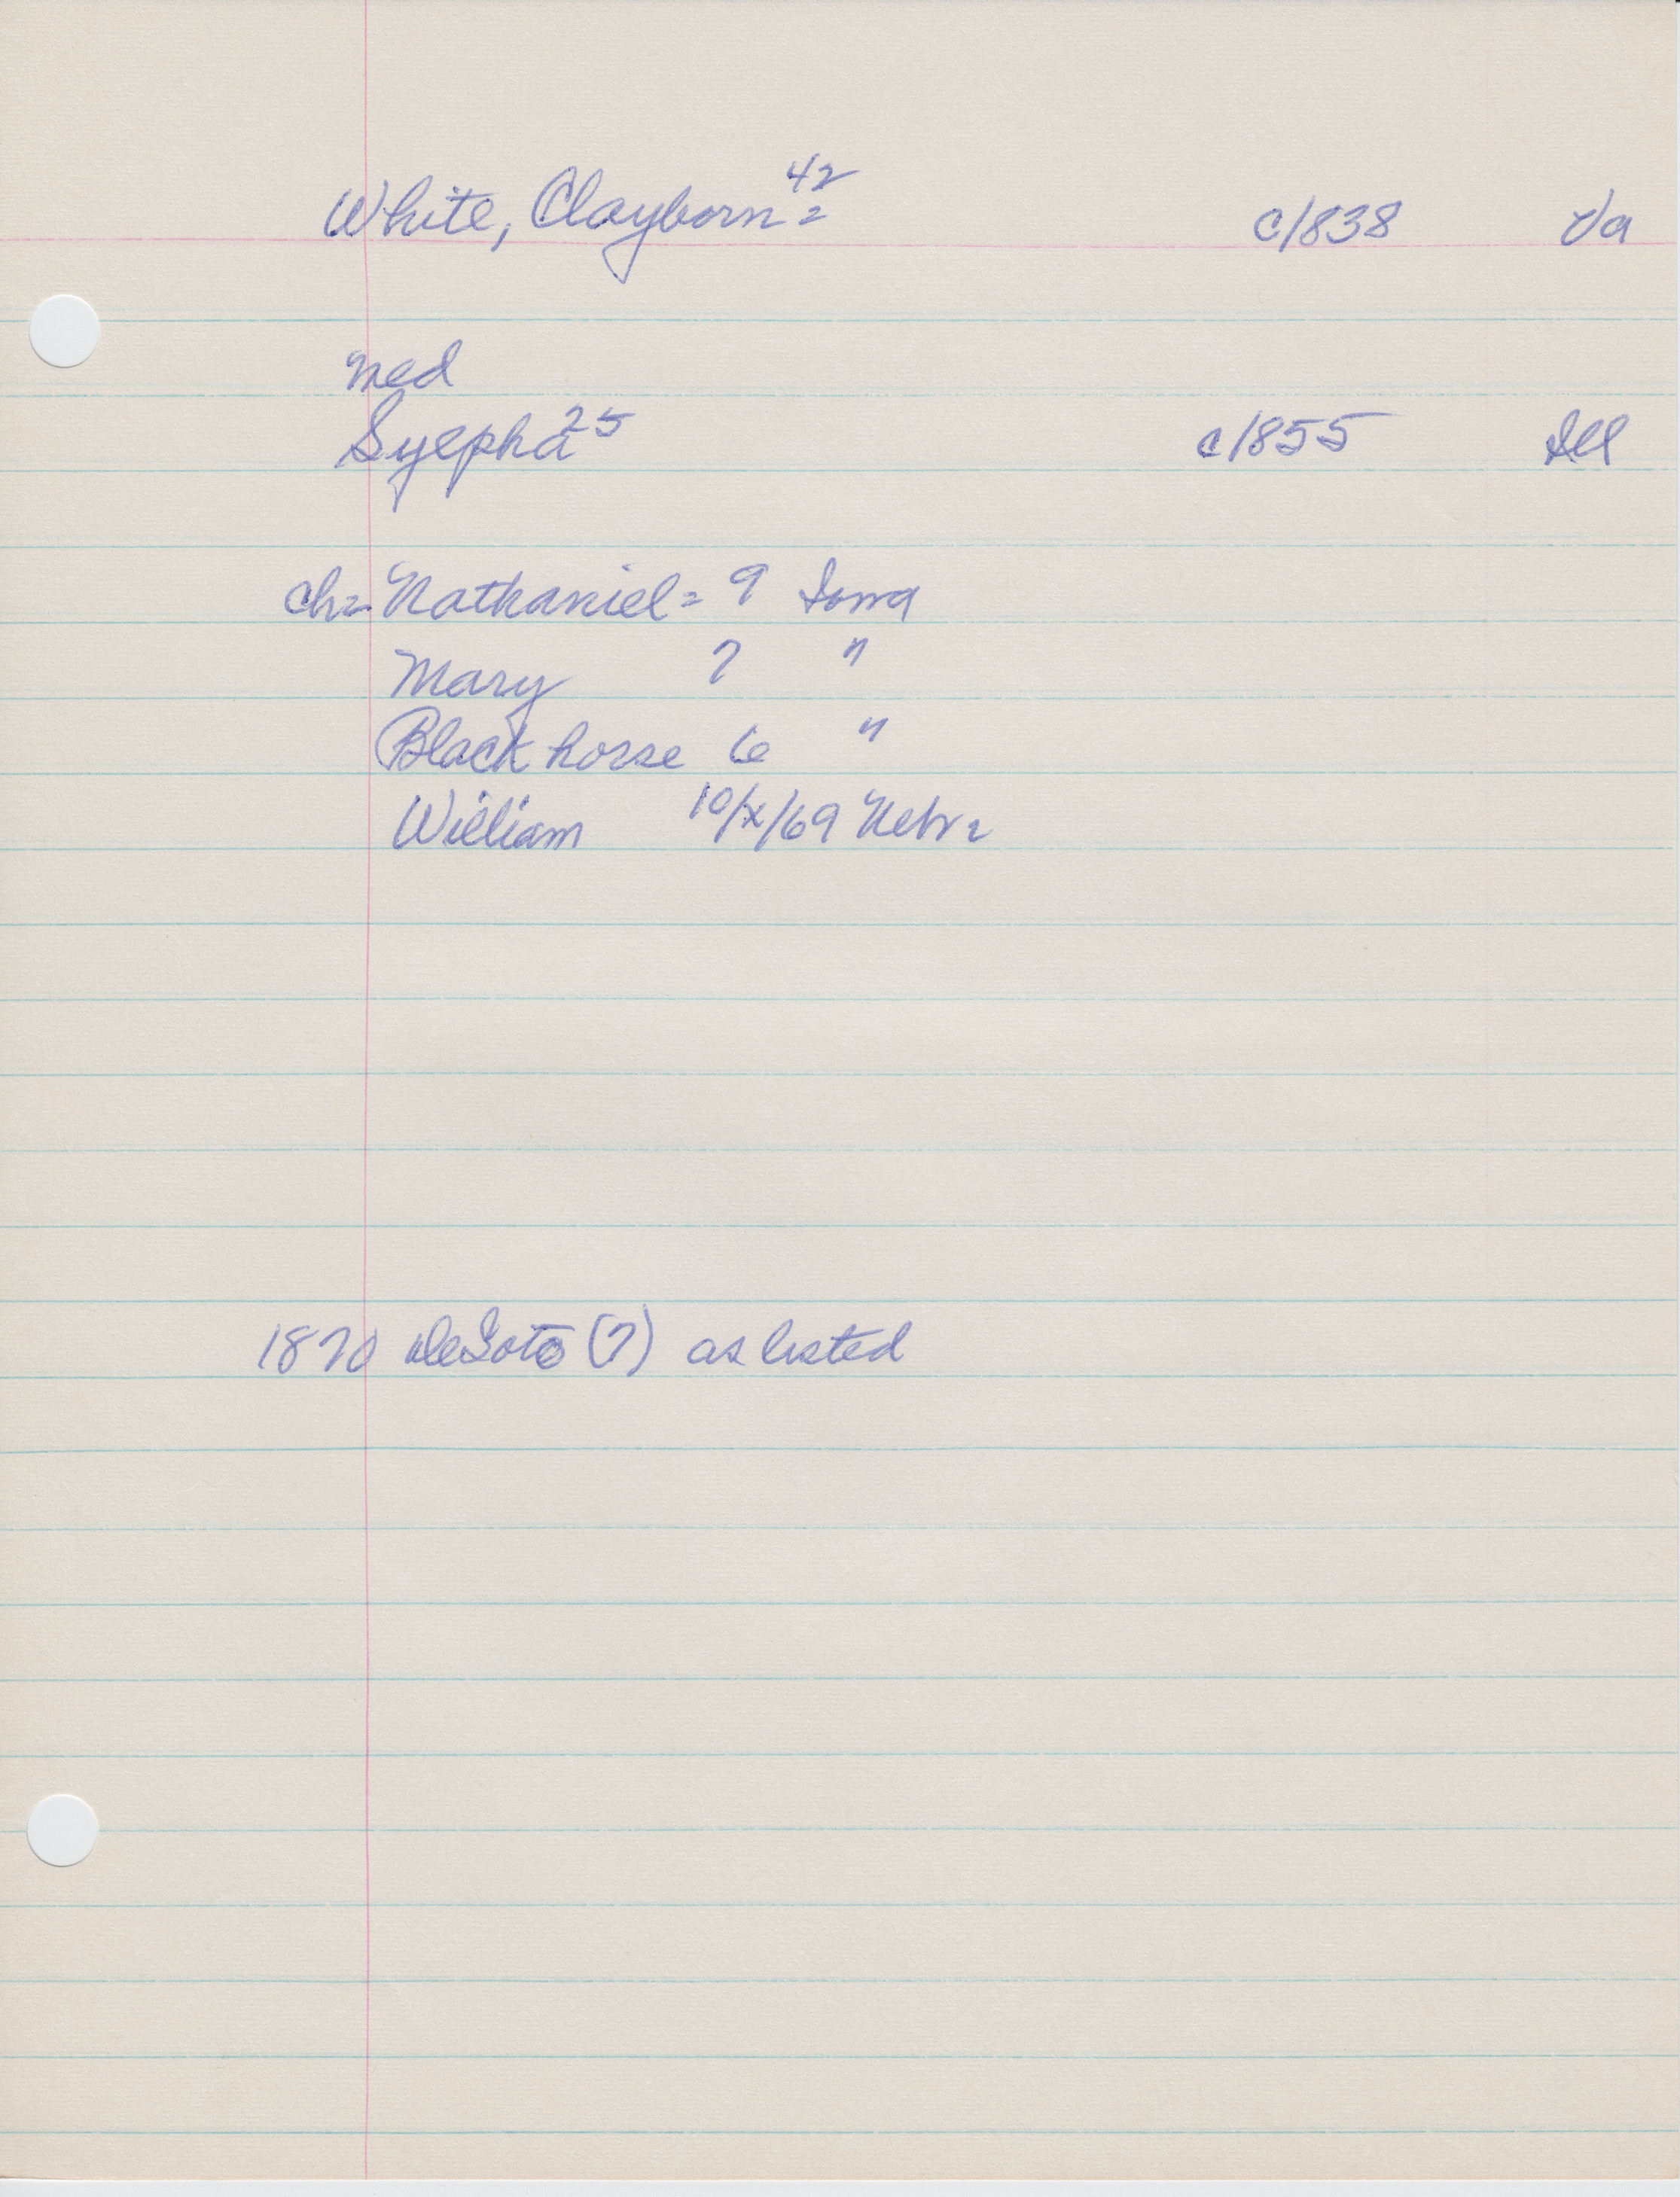 White, Clayborn = 42 c/838 Va
med
Syepha 25 c/855 Ill
ch= Nathaniel = 9 Iowa
Mary 7 "
Black horse 6 "
William 10/x/69 Nebr=
1870 DeSoto (7) as listed